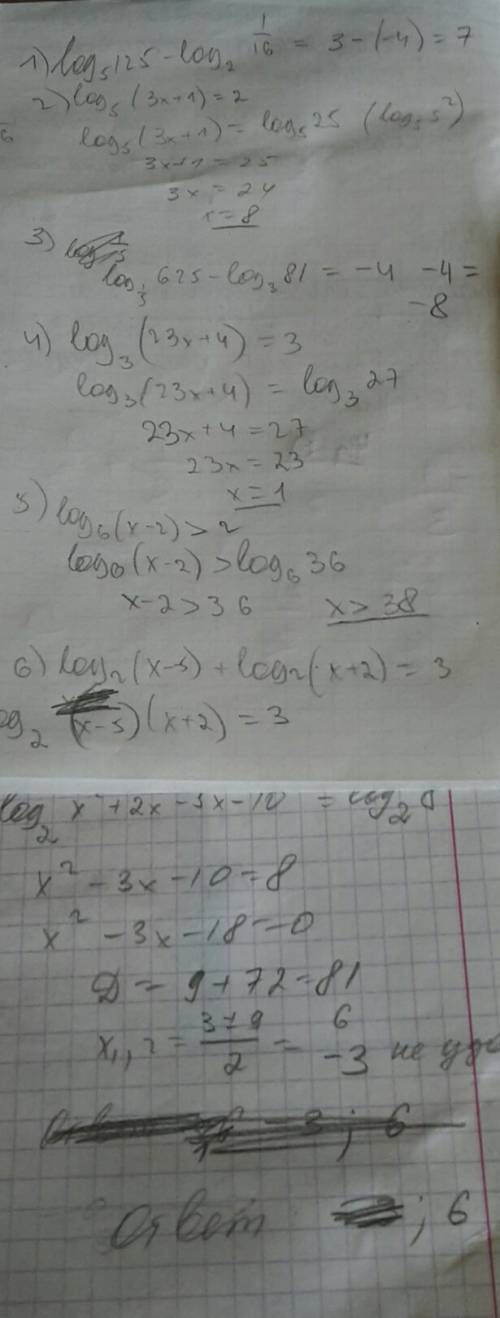 1) log₅125 - log₂ 1/16 = 3 - (-4) = 7
2) log₅ (3x+1) = 2
log₅ (3x+1) = log₅ 25 (log₅ 5²)
3x+1 = 25
3x = 24
x = 8
3)
log 625 - log₃ 81 = -4 -4 =
-8
4) log₃ (23x+4) = 3
log₃ (23x+4) = log₃ 27
23x+4 = 27
23x = 23
x = 1
5) log₆ (x-2) > 2
log₆ (x-2) > log₆ 36
x-2 > 36 x > 38
6) log₂ (x-5) + log₂ (x+2) = 3
log₂ (x-5) (x+2) = 3
log₂ x² + 2x - 5x - 10 = log₂ 8
x² - 3x - 10 = 8
x² - 3x - 18 = 0
D = 9 + 72 = 81
x₁,₂ = 3±9/2 = 6
-3 не удо
-3; 6
Ответ ; 6